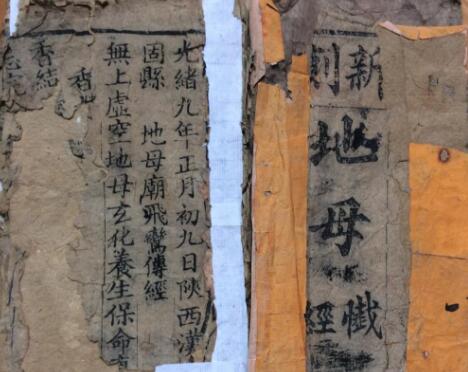 新刻
地母
懺經
光緒九年正月初九日陝西漢
固縣 地母廟飛鸞傳經
無上虛空地母玄化養生保命
香
香結